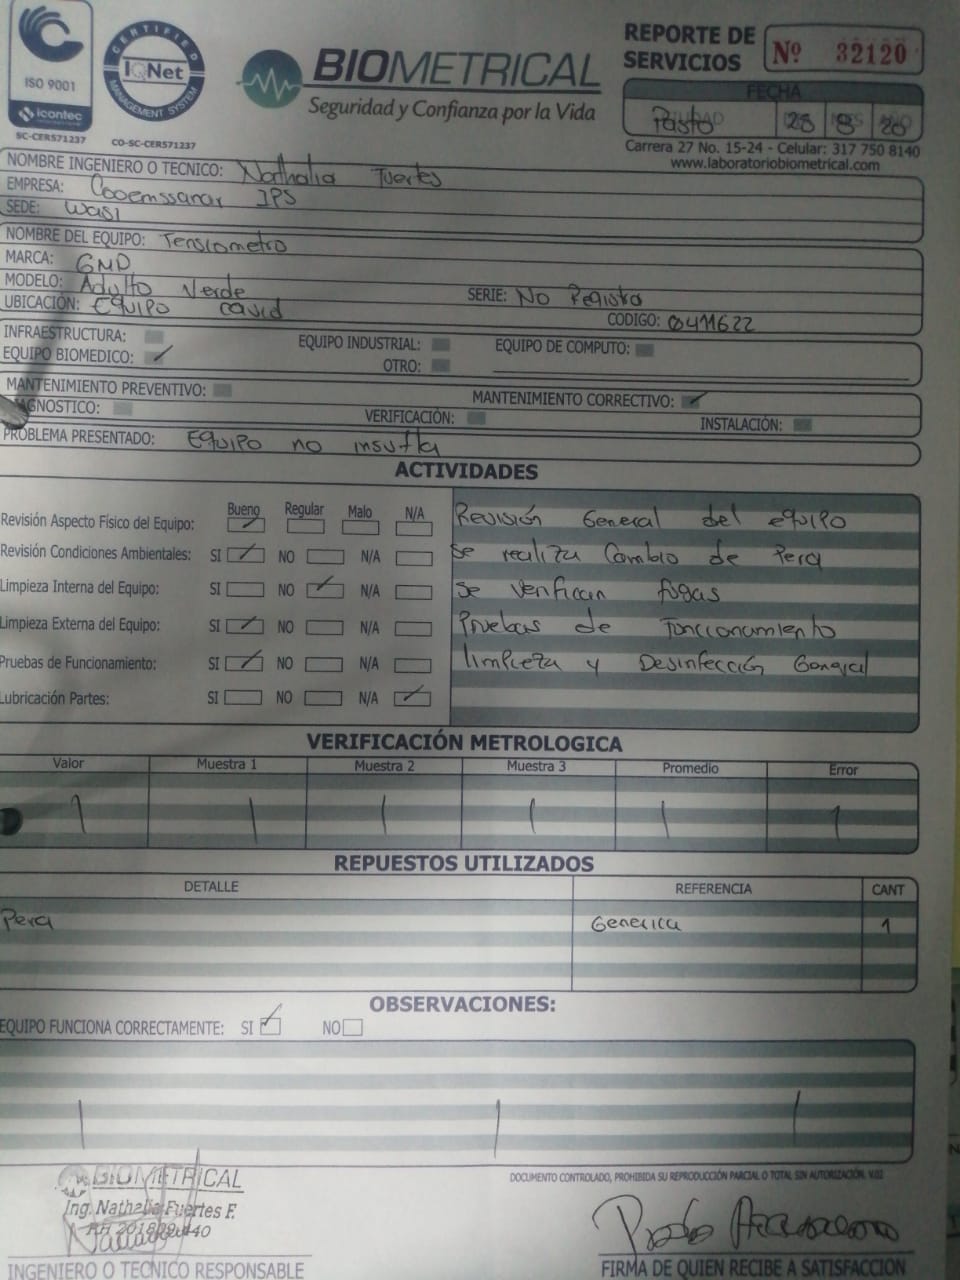 ISO 9001
icontec
SC-CER571237
CERTIFIED
IQNet
MANAGEMENT SYSTEM
CO-SC-CER571237
BIOMETRICAL
Seguridad y Confianza por la Vida
REPORTE DE SERVICIOS Nº 32120
FECHA
Pasto 28 8 20
Carrera 27 No. 15-24 - Celular: 317 750 8140
www.laboratoriobiometrical.com
NOMBRE INGENIERO O TECNICO: Nathalia Fuertes
EMPRESA: Cooemssanar IPS
SEDE: Wasi
NOMBRE DEL EQUIPO: Tensiometro
MARCA: GMD
MODELO: Adulto Verde SERIE: No Registra
UBICACIÓN: Equipo Covid CODIGO: 0411622
INFRAESTRUCTURA: EQUIPO INDUSTRIAL: EQUIPO DE COMPUTO:
EQUIPO BIOMEDICO: OTRO:
MANTENIMIENTO PREVENTIVO: MANTENIMIENTO CORRECTIVO:
AGNOSTICO: VERIFICACIÓN: INSTALACIÓN:
PROBLEMA PRESENTADO: Equipo no insufla
ACTIVIDADES
Bueno Regular Malo N/A
Revisión Aspecto Físico del Equipo:
Revisión Condiciones Ambientales: SI NO N/A
Limpieza Interna del Equipo: SI NO N/A
Limpieza Externa del Equipo: SI NO N/A
Pruebas de Funcionamiento: SI NO N/A
Lubricación Partes: SI NO N/A
Revisión General del equipo
Se realiza Cambio de Pera
Se verifican fugas
Pruebas de Funcionamiento
limpieza y Desinfección General
VERIFICACIÓN METROLOGICA
Valor Muestra 1 Muestra 2 Muestra 3 Promedio Error
REPUESTOS UTILIZADOS
DETALLE REFERENCIA CANT
Pera Generica 1
OBSERVACIONES:
EQUIPO FUNCIONA CORRECTAMENTE: SI NO
DOCUMENTO CONTROLADO, PROHIBIDA SU REPRODUCCIÓN PARCIAL O TOTAL SIN AUTORIZACIÓN. V.02
BIOMETRICAL
Ing. Nathalia Fuertes F.
INGENIERO O TECNICO RESPONSABLE
FIRMA DE QUIEN RECIBE A SATISFACCION